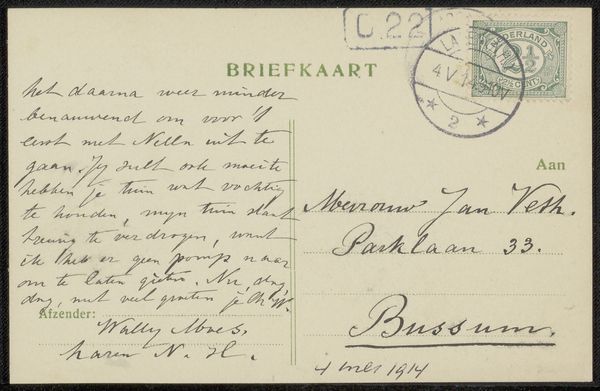 U 22
NEDERLAND
2½
CENT
LAREN
4 V 14 10V
2
BRIEFKAART
het daarna weer minder
benauwend om voor 't
eerst met Nella uit te
gaan. Jij zult ook moeite
hebben je tuin wat vochtig
te houden, mijn tuin staat
treurig te verdrogen, want
ik heb er geen pomp naar
om te laten gieten. Nu, dag,
dag, met veel groeten je
Afzender:
Wally Moes,
Laren N. H.
Aan
Mevrouw Jan Veth.
Parklaan 33.
Bussum.
4 mei 1914